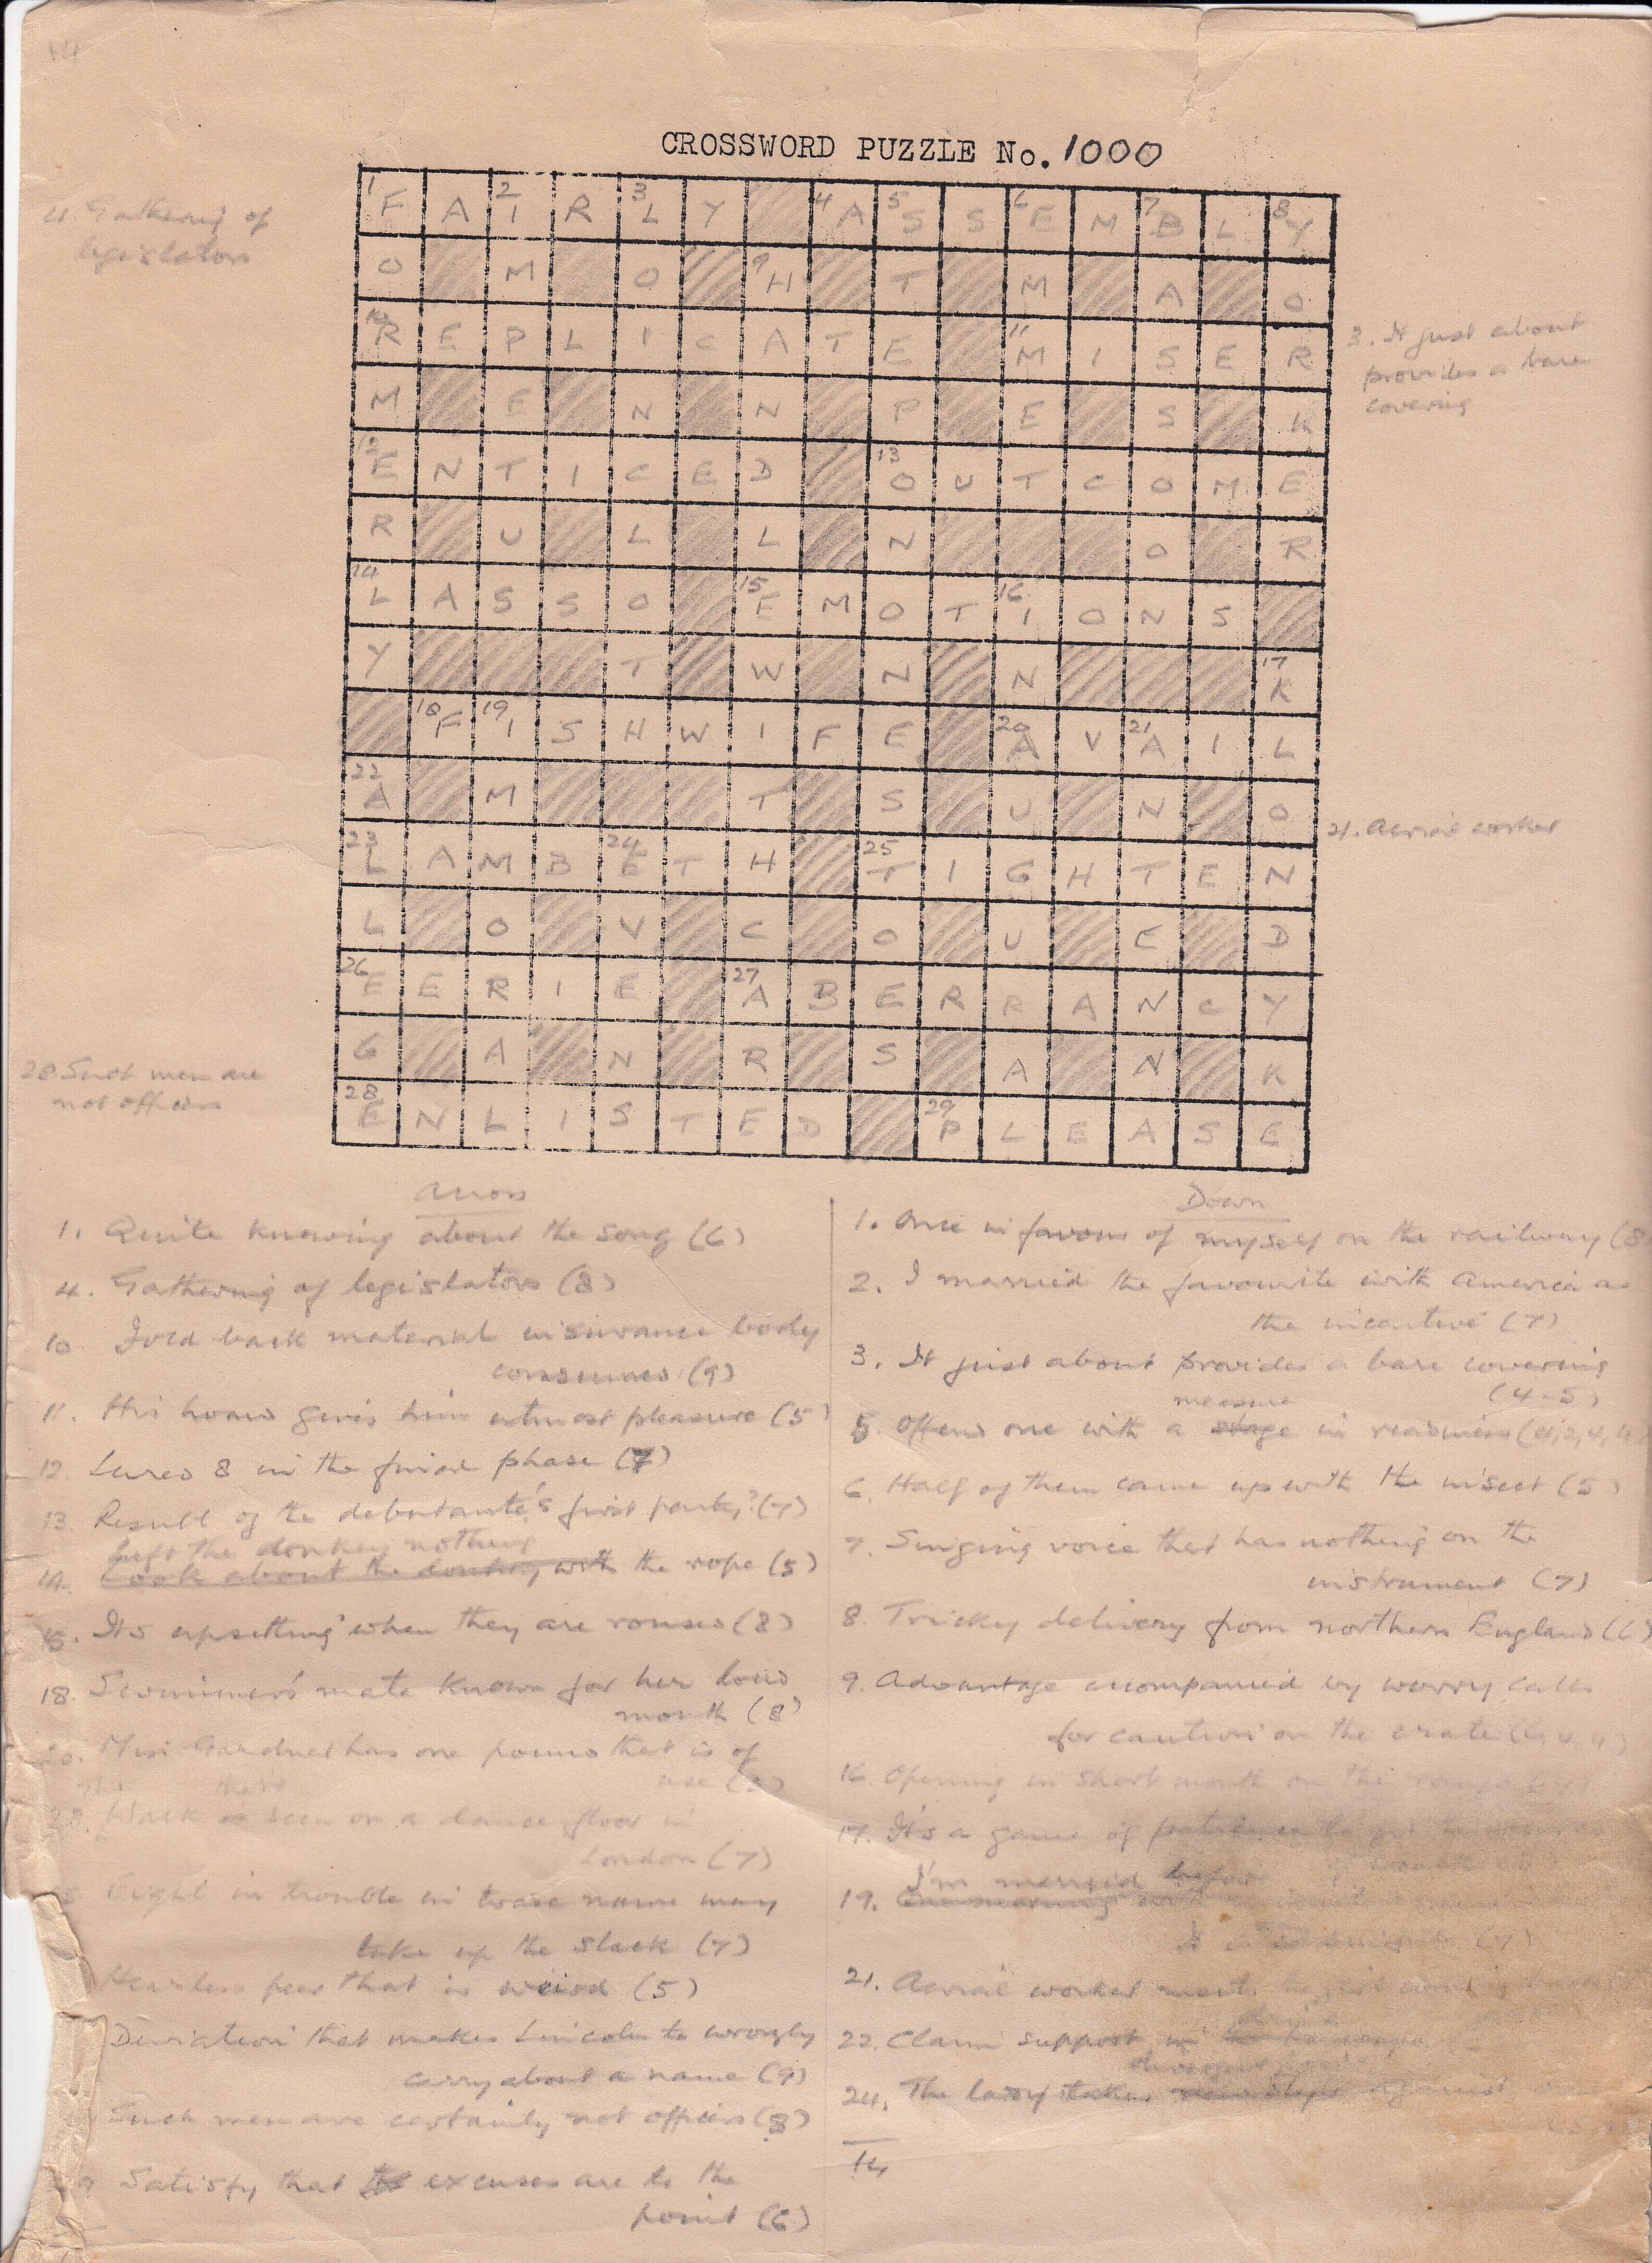 14
CROSSWORD PUZZLE No. 1000
4. Gathering of
legislators
3. It just about
provides a bare
covering
21. Aerial worker
28 Such men are
not officers
1 F A 2 I R 3 L Y 4 A 5 S S 6 E M 7 B L 8 Y
O M O 9 H T M A O
10 R E P L I C A T E 11 M I S E R
M E N N P E S K
12 E N T I C E D 13 O U T C O M E
R U L L N O R
14 L A S S O 15 E M O T 16 I O N S
Y T W N N 17 K
18 F 19 I S H W I F E 20 A V 21 A I L
22 A M T S U N O
23 L A M B 24 E T H 25 T I G H T E N
L O V C O U E D
26 E E R I E 27 A B E R R A N C Y
G A N R S A N K
28 E N L I S T E D 29 P L E A S E
Across
1. Quite knowing about the song (6)
4. Gathering of legislators (8)
10. Fold back material insurance body
consumes (9)
11. His hoard gives him utmost pleasure (5)
12. Lured 8 in the final phase (7)
13. Result of the debutante's first party? (7)
Left the donkey nothing
14. Look about the donkey with the rope (5)
15. Its upsetting when they are roused (8)
18. Swimmer's mate known for her loud
mouth (8)
20. Miss Gardner has one pound that is of
use (5)
The that's
23. Walk is seen on a dance floor in
London (7)
Eight in trouble in trade name may
take up the slack (7)
Heartless peer that is weird (5)
Deviation that makes Lincoln to wrongly
carry about a name (9)
Such men are certainly not officers (8)
29 Satisfy that the excuses are to the
point (6)
Down
1. Once in favour of myself on the railway (8
2. I married the favourite with America as
the incentive (7)
3. It just about provides a bare covering
(4-5)
measure
5. Offend one with a stage in readiness (4,2,4,4
6. Half of them came up with the insect (5)
7. Singing voice that has nothing on the
instrument (7)
8. Tricky delivery from northern England (6)
9. Advantage accompanied by worry calls
for caution on the crate (6,4,4)
16. Opening in short month on the
17. It's a game of
I'm married before
19.
(7)
21. Aerial worker meets
22. Claim support in
24. The lazy takes against
14